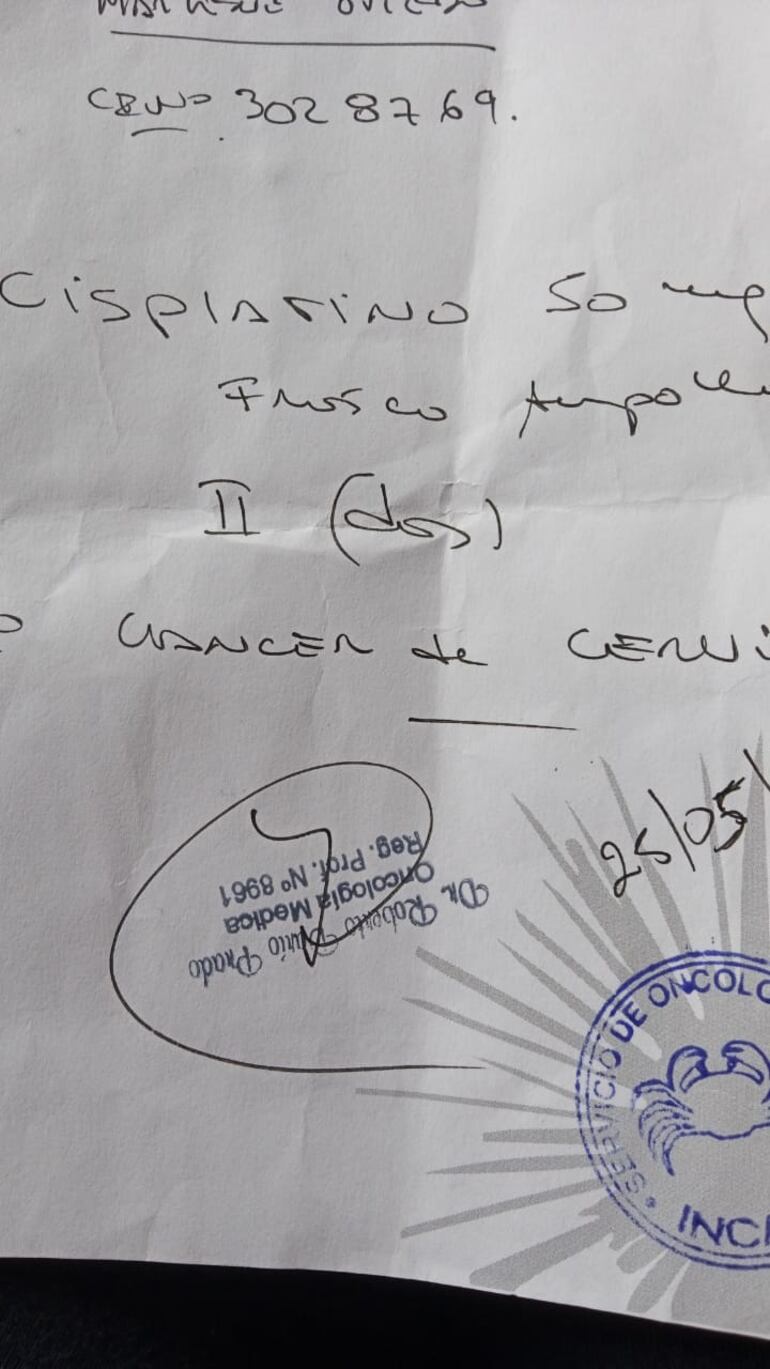 3028769.
Cisplatino 50 mg
Frasco Ampolla
II (dos)
CANCER de CERVI
25/05
Dr. Roberto Prado
Oncología Medica
Reg. Prof. Nº 8961
SERVICIO DE ONCOLO
INC